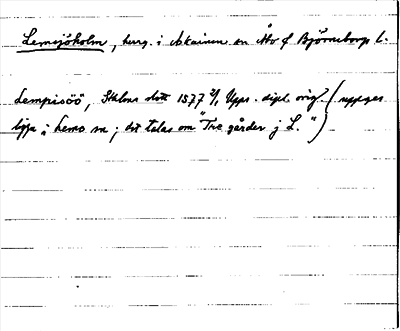 Lemsjöholm, herrg. i Askainen sn Åbo o Björneborgs l.
Lempisöö, Sthlms slott 1577 2/1 Upps. dipl. orig. (uppges
ligga i Lemo sn; det talas om "Tre gårder j L.")